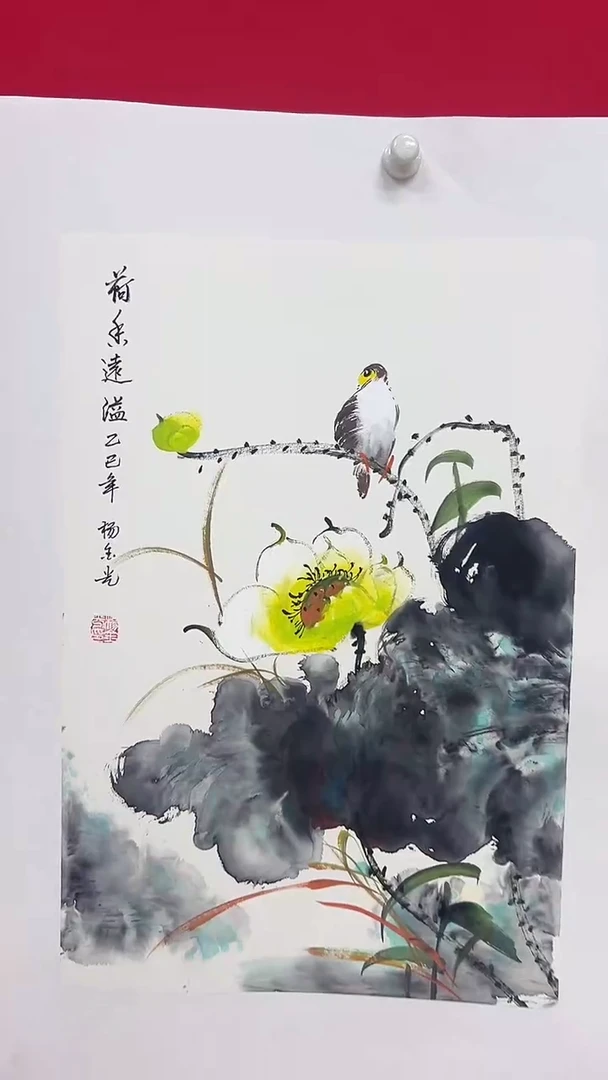 荷香遠溢乙巳年 杨金光